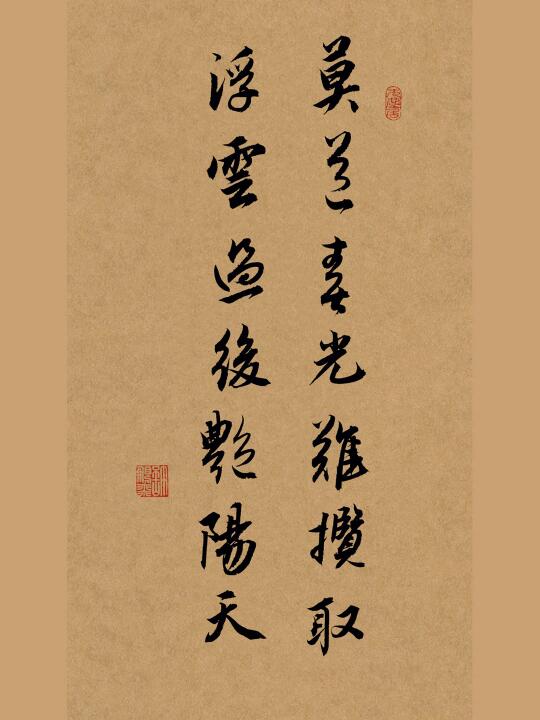 莫道春光難攬取
浮雲過後艷陽天